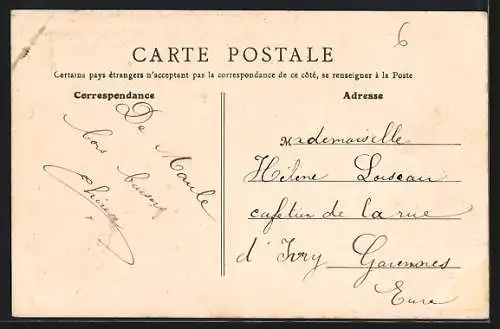 6
CARTE POSTALE
Certains pays étrangers n'acceptent pas la correspondance de ce côté, se renseigner à la Poste
Correspondance
Adresse
De Maule
bons baisers
Mademoiselle
Hélène Loiseau
cafetier de la rue
d'Ivry Garennes
Eure